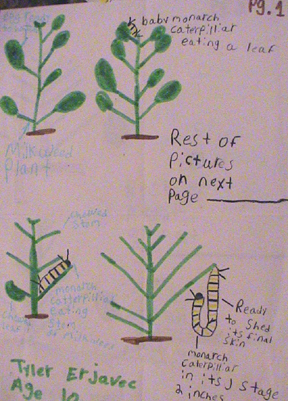 Pg. 1
baby monarch
caterpilliar
eating a leaf
Milkweed
Plant
Rest of
Pictures
on next
Page
stem
monarch
catterpilliar
Eating
Stem
Ready
to shed
its final
Skin
monarch
caterpillar
in its J stage
2 inches
Tyler Erjavec
Age 10